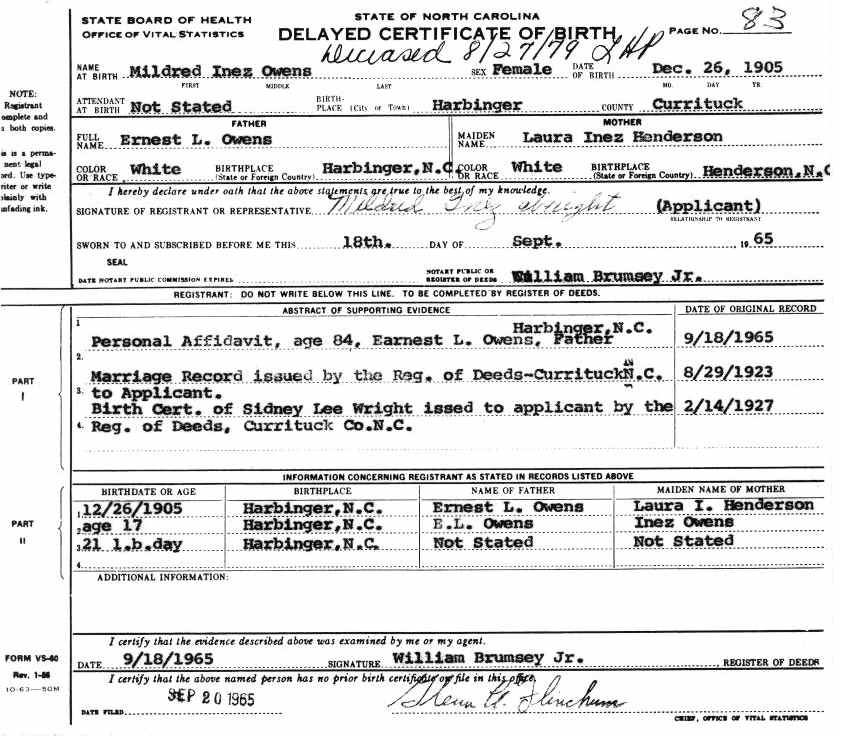 STATE BOARD OF HEALTH
OFFICE OF VITAL STATISTICS
STATE OF NORTH CAROLINA
DELAYED CERTIFICATE OF BIRTH
PAGE No. 83
Deceased 8/27/79 LHP
NOTE:
Registrant
omplete and
both copies.
is is a perma-
nent legal
ord. Use type-
riter or write
plainly with
unfading ink.
NAME AT BIRTH Mildred Inez Owens SEX Female DATE OF BIRTH Dec. 26, 1905
FIRST MIDDLE LAST MO. DAY YR.
ATTENDANT AT BIRTH Not Stated BIRTH-PLACE (City or Town) Harbinger COUNTY Currituck
FATHER MOTHER
FULL NAME Ernest L. Owens MAIDEN NAME Laura Inez Henderson
COLOR OR RACE White BIRTHPLACE (State or Foreign Country) Harbinger,N.C COLOR OR RACE White BIRTHPLACE (State or Foreign Country) Henderson,N.C
I hereby declare under oath that the above statements are true to the best of my knowledge.
SIGNATURE OF REGISTRANT OR REPRESENTATIVE Mildred Inez (Applicant)
RELATIONSHIP TO REGISTRANT
SWORN TO AND SUBSCRIBED BEFORE ME THIS 18th. DAY OF Sept. 1965
SEAL
DATE NOTARY PUBLIC COMMISSION EXPIRES NOTARY PUBLIC OR REGISTER OF DEEDS William Brumsey Jr.
REGISTRANT: DO NOT WRITE BELOW THIS LINE. TO BE COMPLETED BY REGISTER OF DEEDS.
PART I
ABSTRACT OF SUPPORTING EVIDENCE DATE OF ORIGINAL RECORD
1 Harbinger,N.C.
Personal Affidavit, age 84, Earnest L. Owens, Father 9/18/1965
2.
Marriage Record issued by the Reg. of Deeds-CurrituckN.C. 8/29/1923
3. to Applicant.
Birth Cert. of Sidney Lee Wright issed to applicant by the 2/14/1927
4. Reg. of Deeds, Currituck Co.N.C.
PART II
INFORMATION CONCERNING REGISTRANT AS STATED IN RECORDS LISTED ABOVE
BIRTHDATE OR AGE BIRTHPLACE NAME OF FATHER MAIDEN NAME OF MOTHER
1. 12/26/1905 Harbinger,N.C. Ernest L. Owens Laura I. Henderson
2. age 17 Harbinger,N.C. E.L. Owens Inez Owens
3. 21 l.b.day Harbinger,N.C. Not Stated Not Stated
4.
ADDITIONAL INFORMATION:
I certify that the evidence described above was examined by me or my agent.
DATE 9/18/1965 SIGNATURE William Brumsey Jr. REGISTER OF DEEDS
I certify that the above named person has no prior birth certificate on file in this office.
DATE FILED SEP 20 1965
CHIEF, OFFICE OF VITAL STATISTICS
FORM VS-60
Rev. 1-56
10-63—50M